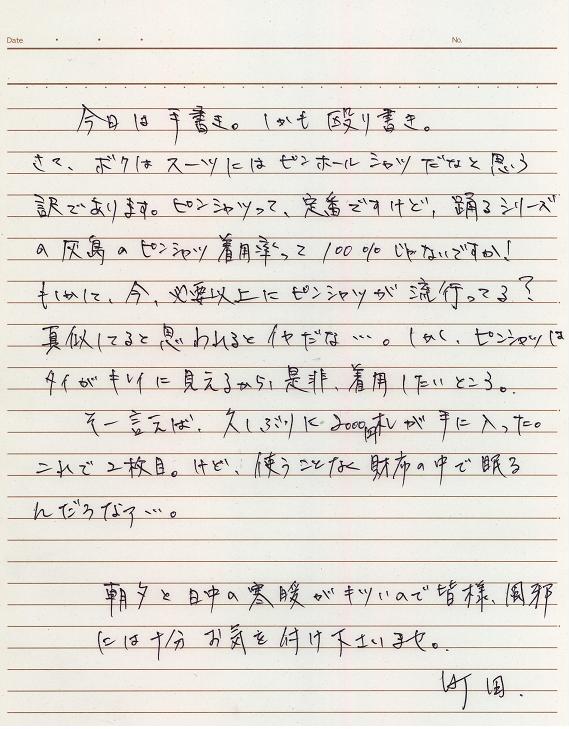 Date
No.
今日は手書き。しかも殴り書き。
さて、ボクはスーツにはピンホールシャツだなと思う
訳であります。ピンシャツって、定番ですけど、踊るシリーズ
の灰島のピンシャツ着用率って100%じゃないですか!
もしかして、今、必要以上にピンシャツが流行ってる?
真似してると思われるとイヤだな…。しかし、ピンシャツは
タイがキレイに見えるから、是非、着用したいところ。
そー言えば、久しぶりに2000円札が手に入った。
これで2枚目。けど、使うことなく財布の中で眠る
んだろなァ…。
朝夕と日中の寒暖がキツいので皆様、風邪
には十分お気を付け下さいませ。
町田.